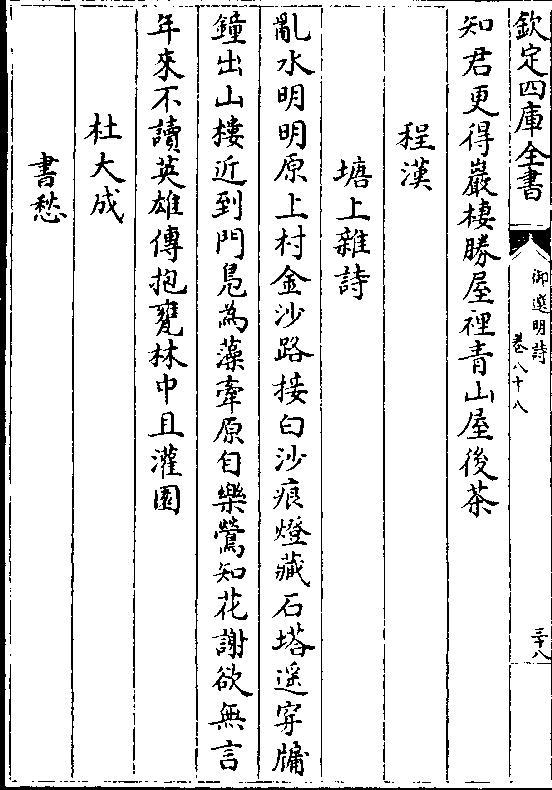 欽定四庫全書
御選明詩
卷八十八
三十八
知君更得巖棲勝屋裡青山屋後茶
程漢
塘上雜詩
亂水明明原上村金沙路接白沙痕燈藏石塔遥穿牗
鐘出山樓近到門鳧為藻牽原自樂鶯知花謝欲無言
年來不讀英雄傳抱甕林中且灌園
杜大成
書愁